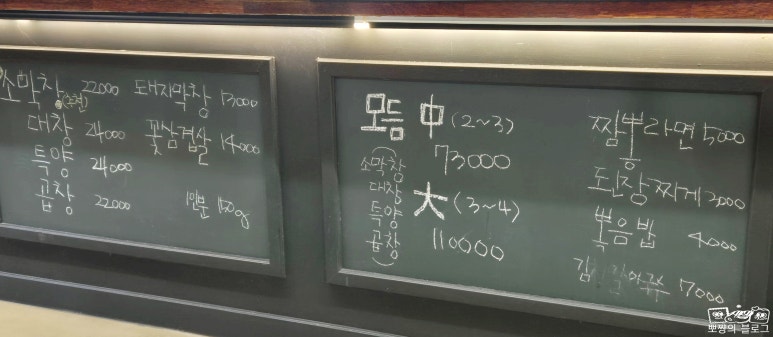 소막창 22000 돼지막창 13000
대창 24000 꽃삼겹살 14000
특양 24000
곱창 22000 1인분 150g
모듬 中 (2~3)
73000
소막창
대창
특양
곱창
大 (3~4)
110000
짬뽕라면 5000
된장찌게 2000
볶음밥 4000
7000
뽀찡의 블로그